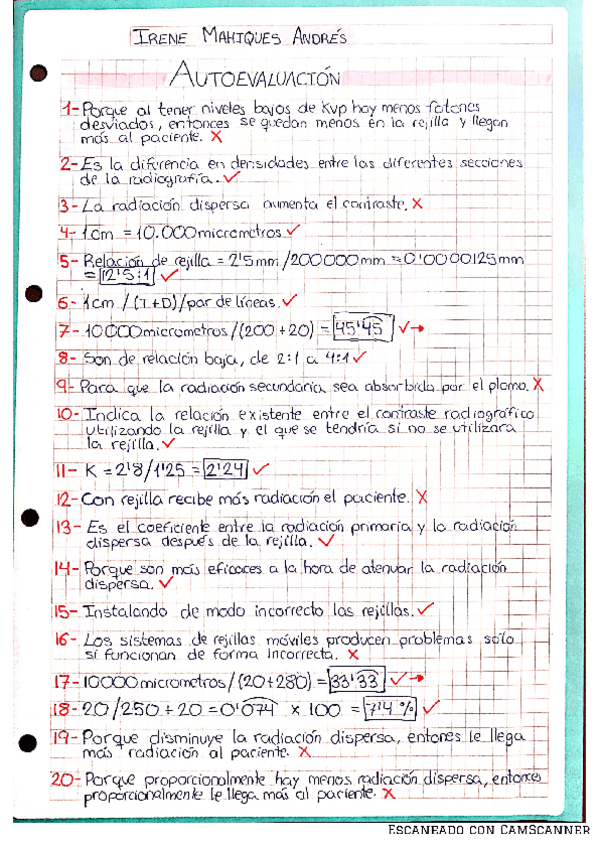 IRENE MAHIQUES ANDRÉS
AUTOEVALUACIÓN
1- Porque al tener niveles bajos de Kvp hay menos fotones
desviados, entonces se quedan menos en la rejilla y llegan
más al paciente. X
2- Es la diferencia en densidades entre las diferentes secciones
de la radiografía. ✓
3- La radiación dispersa aumenta el contraste. X
4- 1 cm = 10.000 micrometros ✓
5- Relación de rejilla = 2'5mm /200000mm = 0'0000125mm
= 12'5:1 ✓
6- 1cm / (T+D)/par de líneas. ✓
7- 10000 micrometros/(200+20) = 45'45 ✓→
8- Son de relación baja, de 2:1 a 4:1 ✓
9- Para que la radiación secundaria sea absorbida por el plomo. X
10- Indica la relación existente entre el contraste radiográfico
utilizando la rejilla y el que se tendría si no se utilizara
la rejilla. ✓
11- K = 2'8/1'25 = 2'24 ✓
12- Con rejilla recibe más radiación el paciente. X
13- Es el coeficiente entre la radiación primaria y la radiación
dispersa después de la rejilla. ✓
14- Porque son más eficaces a la hora de atenuar la radiación
dispersa. ✓
15- Instalando de modo incorrecto las rejillas. ✓
16- Los sistemas de rejillas móviles producen problemas solo
si funcionan de forma incorrecta. X
17- 10000 micrometros/(20+280) = 33'33 ✓→
18- 20/250+20 = 0'074 x 100 = 7'4% ✓
19- Porque disminuye la radiación dispersa, entones le llega
más radiación al paciente. X
20- Porque proporcionalmente hay menos radiación dispersa, entonces
proporcionalmente le llega más al paciente. X
ESCANEADO CON CAMSCANNER